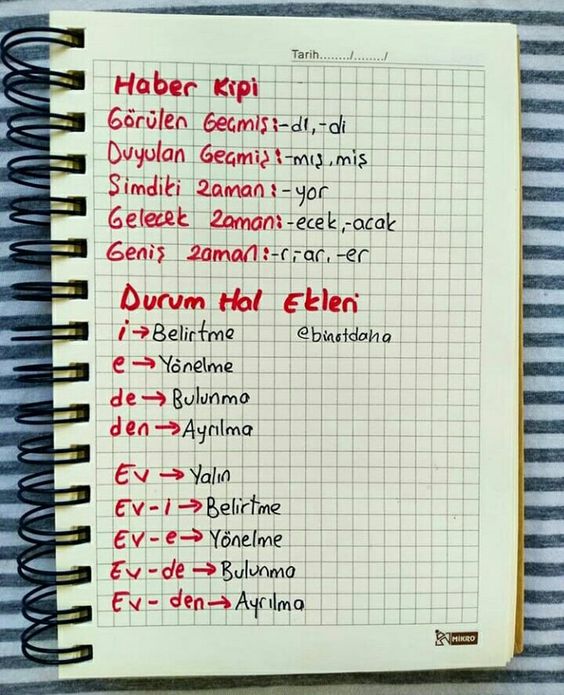 Tarih......../......../
Haber Kipi
Görülen Geçmiş:-dı,-di
Duyulan Geçmiş:-mış,miş
Şimdiki Zaman:-yor
Gelecek Zaman:-ecek,-acak
Geniş Zaman:-r,-ar,-er
Durum Hal Ekleri
i→Belirtme @binotdaha
e→Yönelme
de→Bulunma
den→Ayrılma
Ev→Yalın
Ev-i→Belirtme
Ev-e→Yönelme
Ev-de→Bulunma
Ev-den→Ayrılma
MİKRO